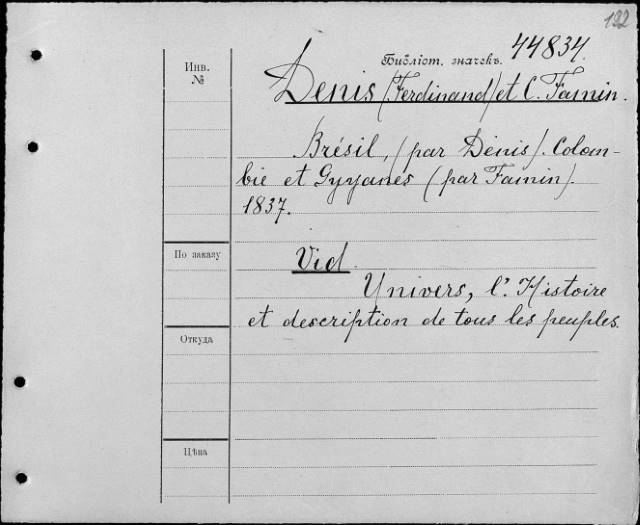 132
Инв.
№
Библіот. значекъ. 44834.
Denis (Ferdinand) et C. Famin.
Brésil, (par Denis). Colom-
bie et Gyyanes (par Famin).
1837.
По заказу
Vid.
Univers, l'. Histoire
et description de tous les peuples.
Откуда
Цѣна